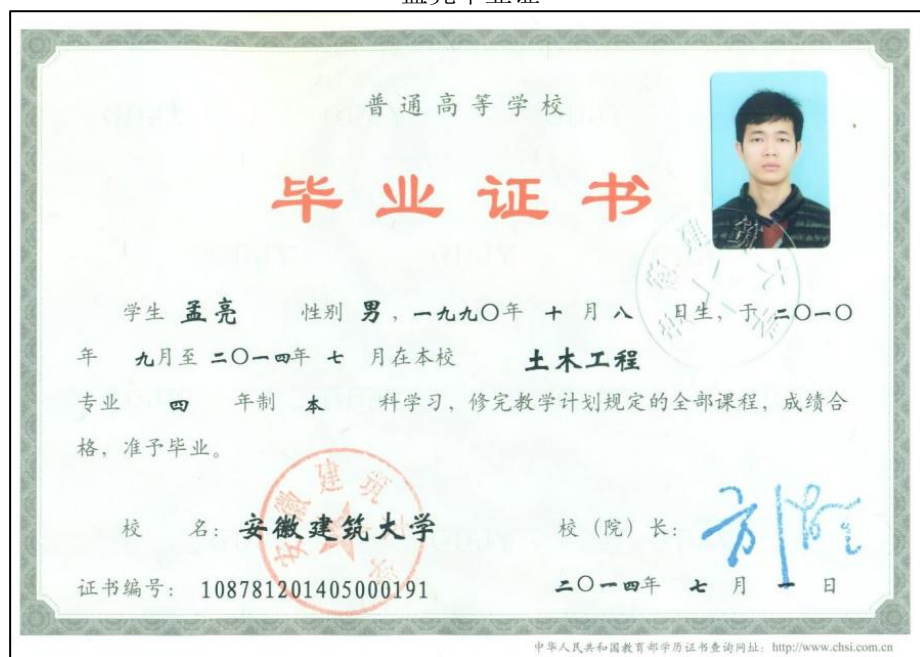 孟亮毕业证
普通高等学校
毕业证书
学生 孟亮 性别 男，一九九〇年 十 月 八 日生，于 二〇一〇
年 九月至 二〇一四年 七 月在本校 土木工程
专业 四 年制 本 科学习，修完教学计划规定的全部课程，成绩合
格，准予毕业。
校 名：安徽建筑大学
校（院）长：
证书编号： 108781201405000191
二〇一四年 七 月 一 日
安徽建筑大学
中华人民共和国教育部学历证书查询网址：http://www.chsi.com.cn